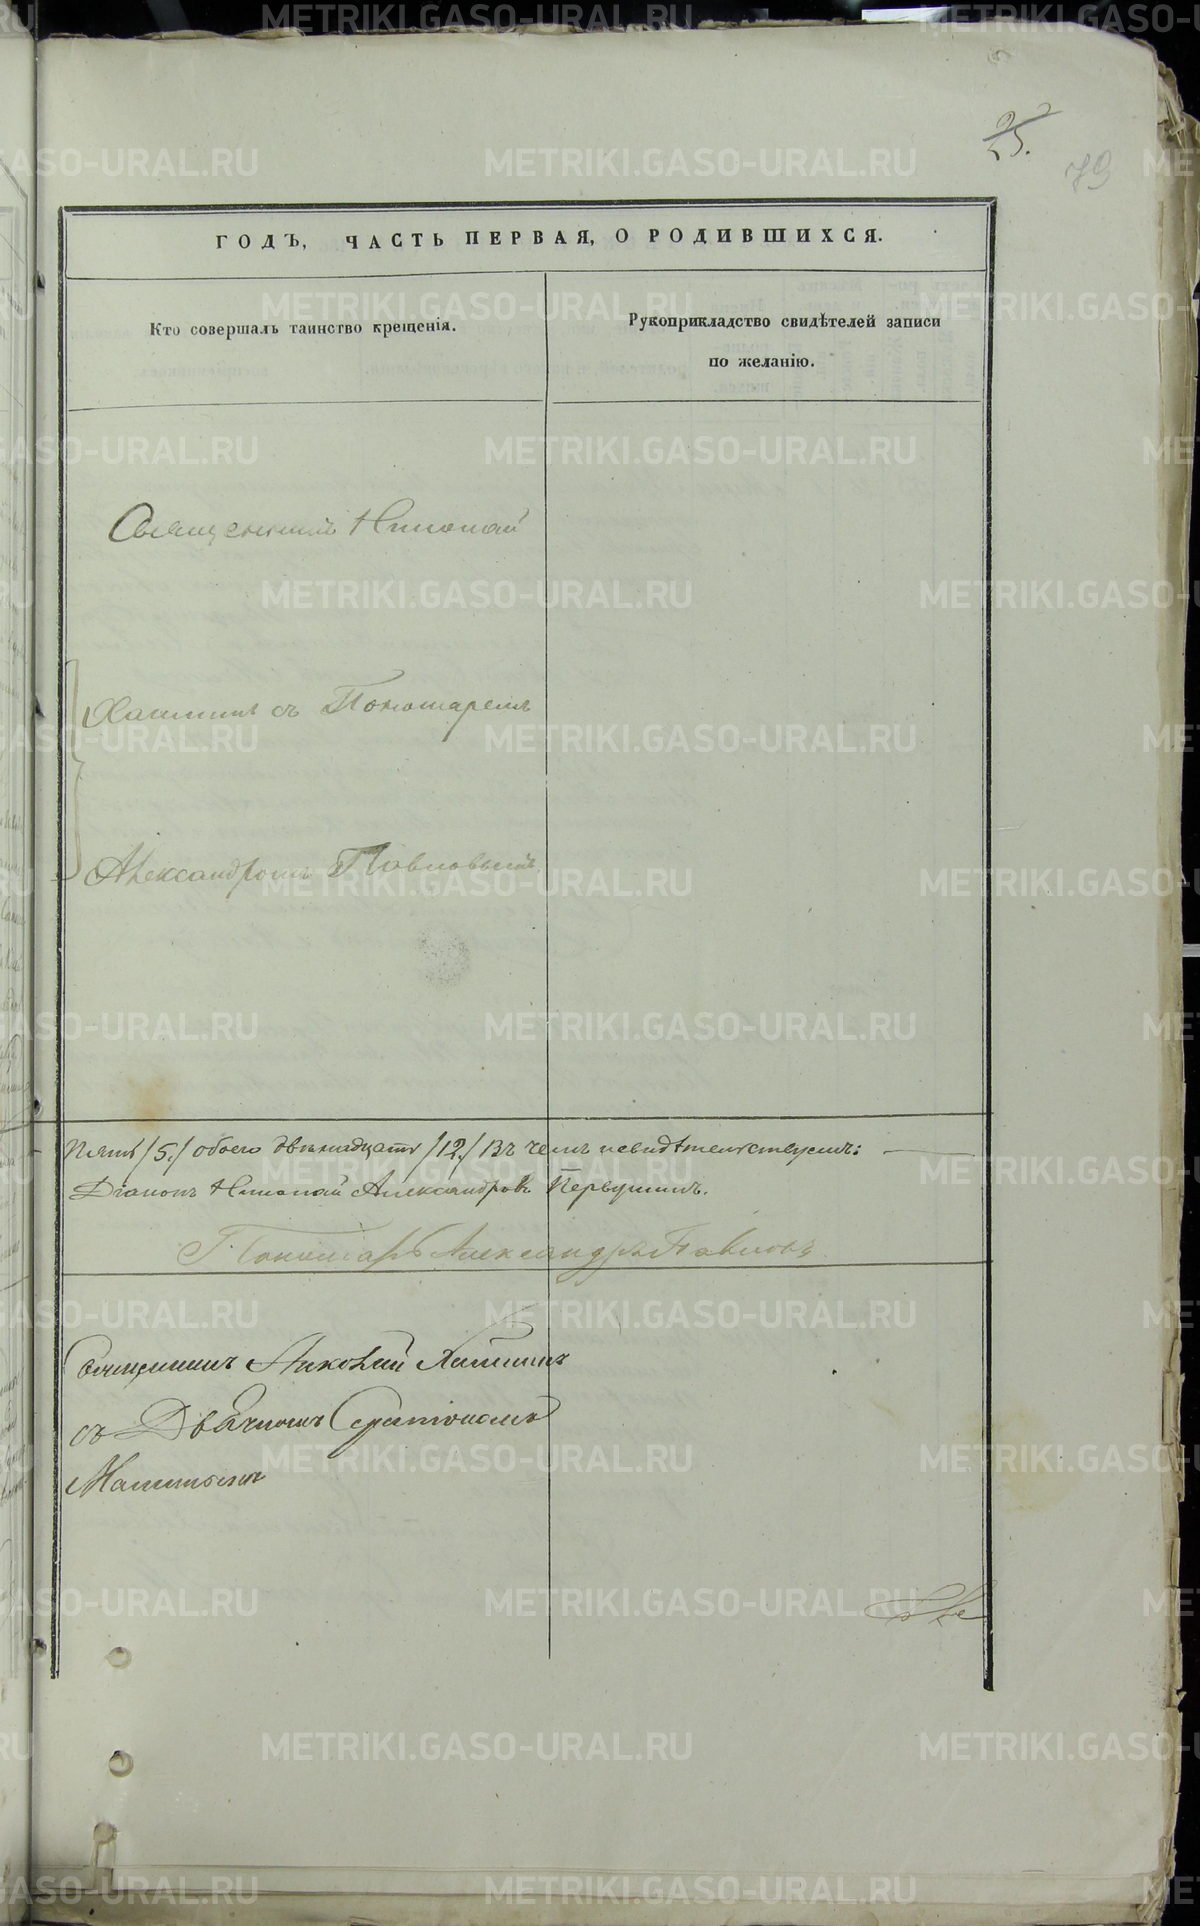 25.
79
ГОДЪ, ЧАСТЬ ПЕРВАЯ, О РОДИВШИХСЯ.
Кто совершалъ таинство крещенія.
Рукоприкладство свидѣтелей записи
по желанію.
Священникъ Николай
съ Пономаремъ
Александромъ Павловымъ
Пять /5./ обоего двѣнадцать /12./ Въ чемъ и свидѣтельствуемъ:
Діаконъ Николай Александровъ Первушинъ.
Пономарь Александръ Павловъ
Священникъ Николай
съ Дьячкомъ
METRIKI.GASO-URAL.RU